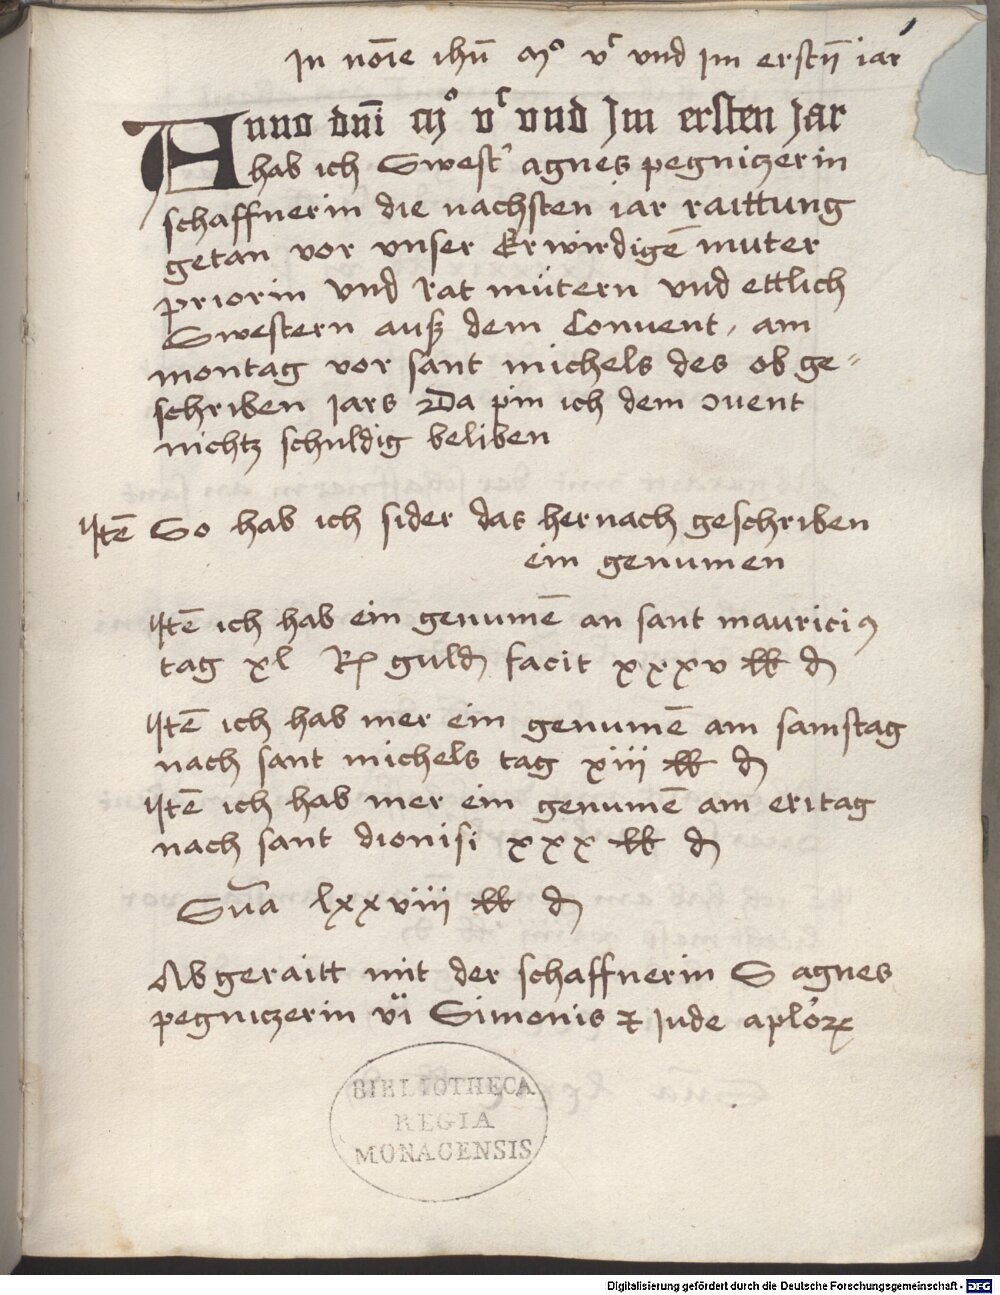 In nōīe ihū mº vᶜ vnd Im erstn̄ iar
Anno dn̄i mº vᶜ vnd Im ersten Jar
hab ich Swestʼ agnes pegniczerin
schaffnerin die nachsten iar raittung
getan vor vnser Erwirdigē muter
priorin vnd rat mütern vnd ettlich
Swestern auß dem Conuent, am
montag vor sant michels des ob ge-
schriben Jars Da pin ich dem ꝯuent
nichtz schuldig beliben
Itē So hab ich sider das hernach geschriben
ein genumen
Itē ich hab ein genumē an sant mauriciꝰ
tag xl R guldꝭ facit xxxv ℔ ₰
Itē ich hab mer ein genumē am samstag
nach sant michels tag xiii ℔ ₰
Itē ich hab mer ein genumē am eritag
nach sant dionisi xxx ℔ ₰
Sūa lxxviii ℔ ₰
Abgeraitt mit der schaffnerin S agnes
pegniczerin vi Simonis ⁊ Jude aplōꝝ
BIBLIOTHECA
REGIA
MONACENSIS
Digitalisierung gefördert durch die Deutsche Forschungsgemeinschaft - DFG